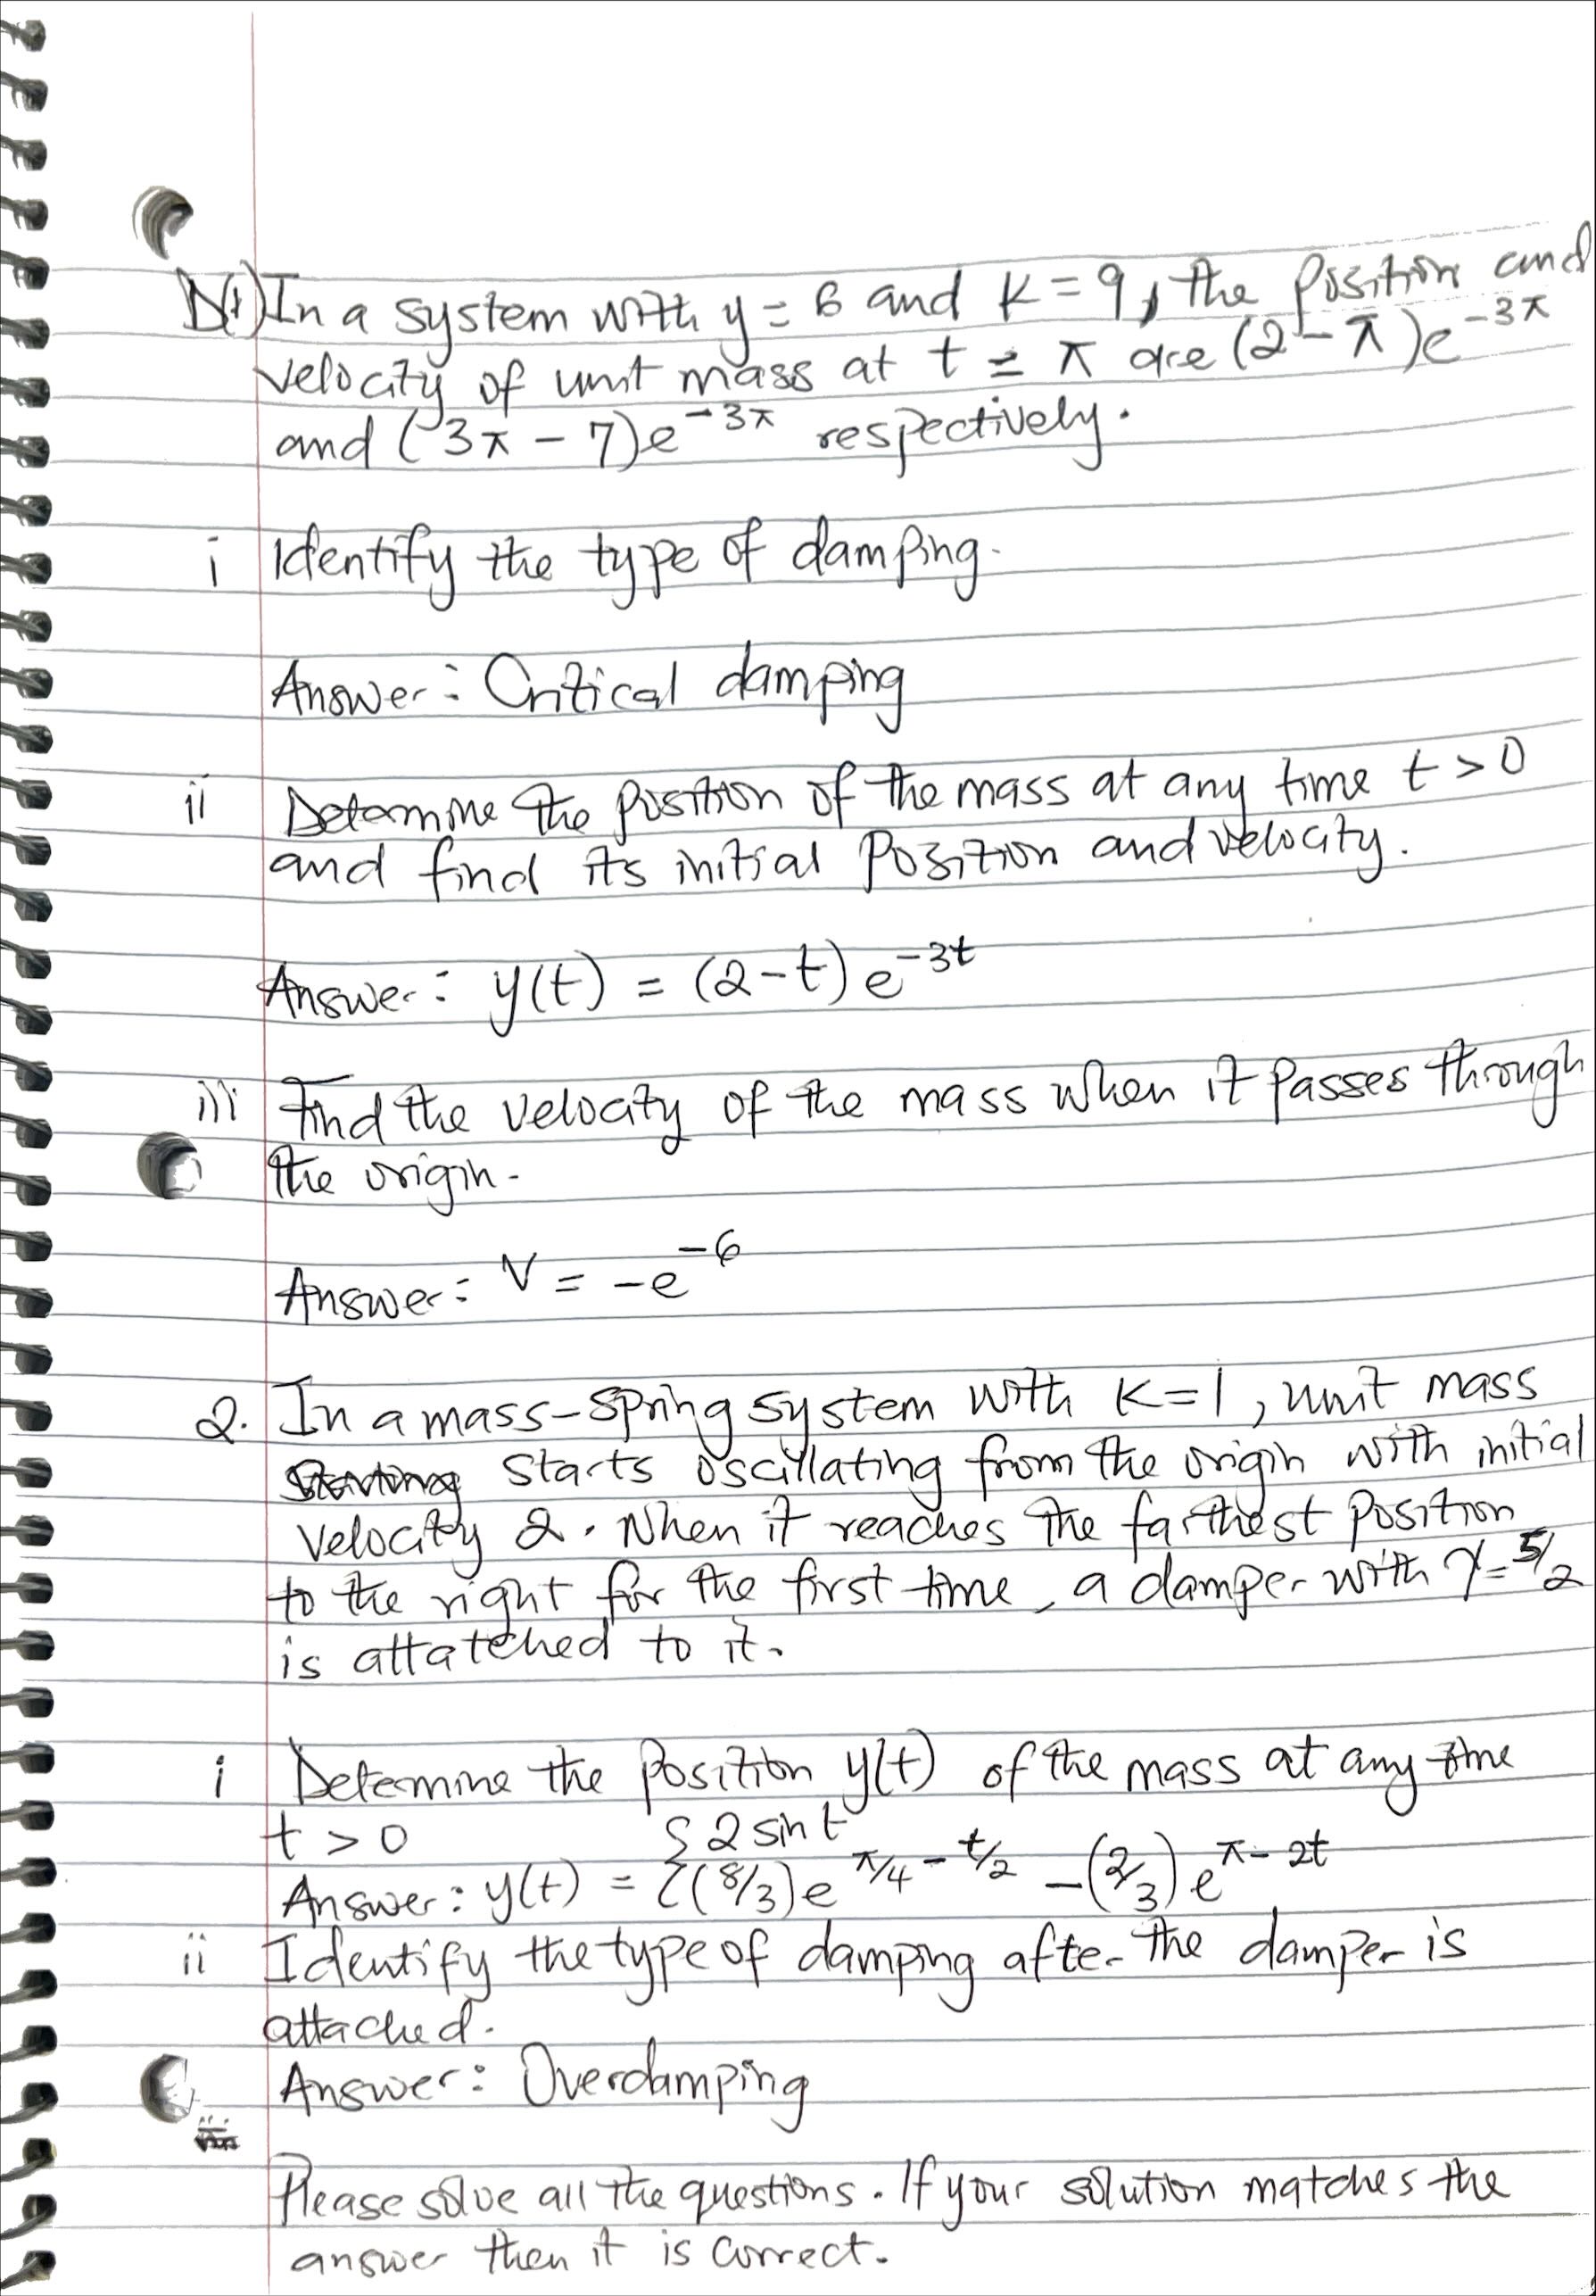 D(1) In a system with y = 6 and K = 9, the position and
velocity of unit mass at t = π are (2 - π)e^-3π
and (3π - 7)e^-3π respectively.
i Identify the type of damping.
Answer: Critical damping
ii Determine the position of the mass at any time t > 0
and find its initial Position and velocity.
Answer: y(t) = (2-t) e^-3t
iii Find the velocity of the mass when it passes through
the origin.
Answer: V = -e^-6
2. In a mass-spring system with K=1, unit mass
starts oscillating from the origin with initial
velocity 2. When it reaches the farthest position
to the right for the first time, a damper with γ=5/2
is attatched to it.
i Determine the position y(t) of the mass at any time
t > 0
Answer: y(t) = { 2 sin t
(8/3)e^π/4 - t/2 - (2/3) e^π - 2t
ii Identify the type of damping after the damper is
attached.
Answer: Overdamping
Please solve all the questions. If your solution matches the
answer then it is correct.